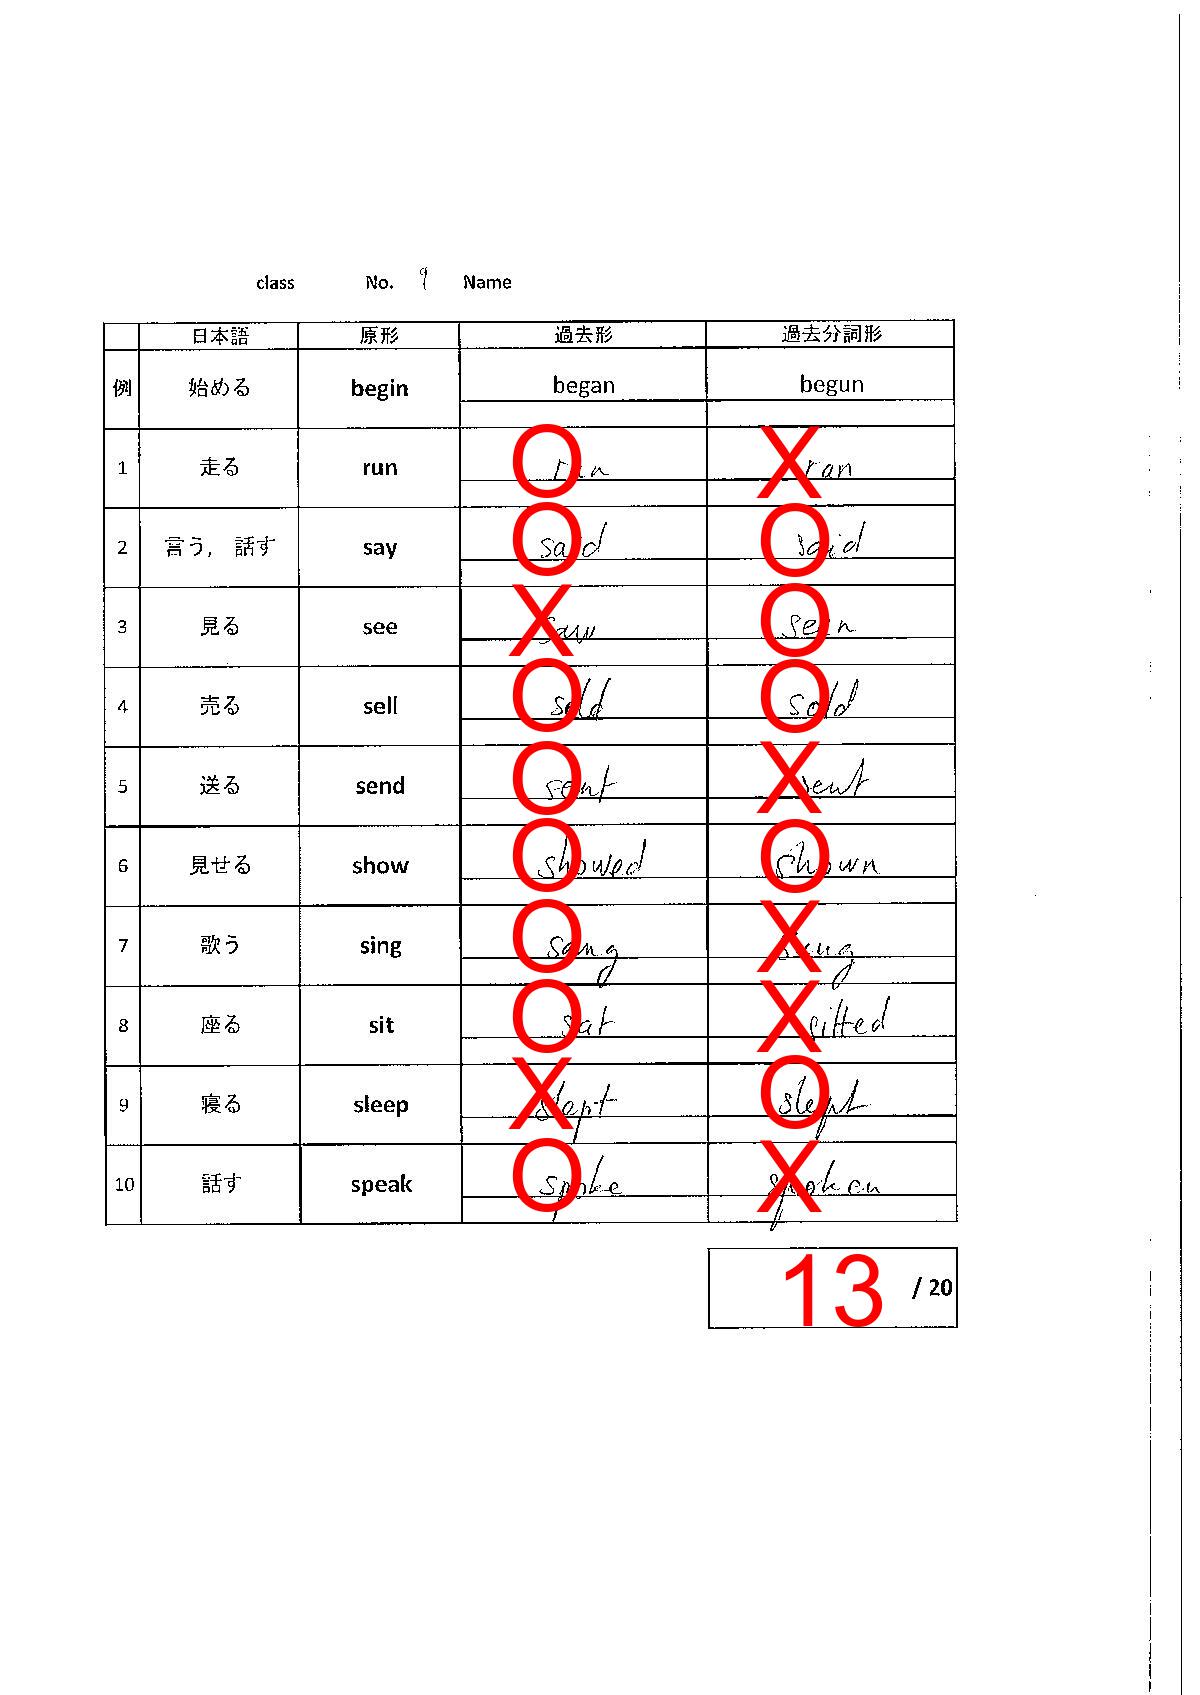 class No. 9 Name
日本語 原形 過去形 過去分詞形
例 始める begin began begun
1 走る run ran ran
2 言う, 話す say said said
3 見る see saw seen
4 売る sell sold sold
5 送る send sent sent
6 見せる show showed shown
7 歌う sing sang sung
8 座る sit sat sitted
9 寝る sleep slapt slept
10 話す speak spoke spoken
13 / 20